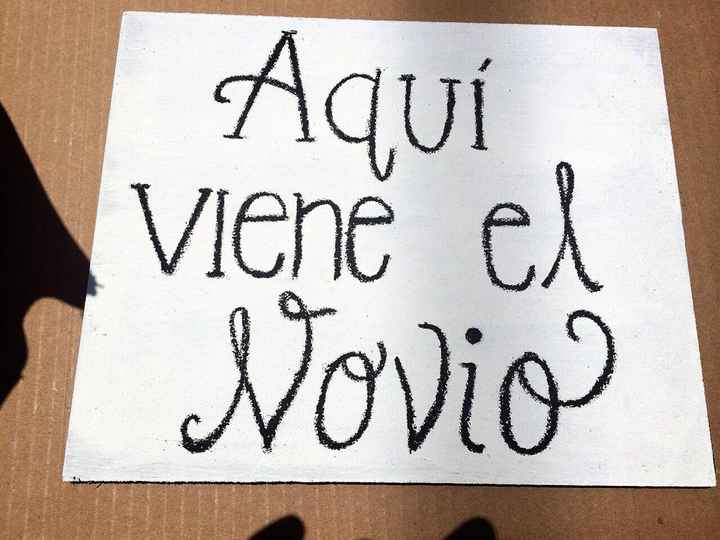 Aquí
viene el
Novio